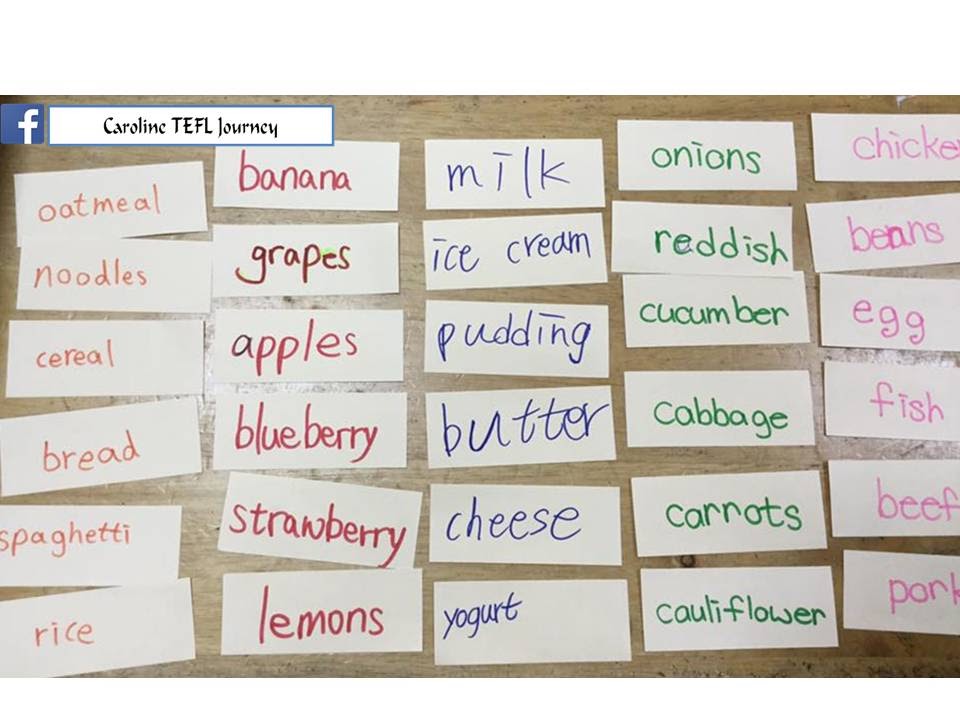 Caroline TEFL Journey
oatmeal
noodles
cereal
bread
spaghetti
rice
banana
grapes
apples
blueberry
strawberry
lemons
milk
ice cream
pudding
butter
cheese
yogurt
onions
reddish
cucumber
cabbage
carrots
cauliflower
chicke
beans
egg
fish
beef
pork